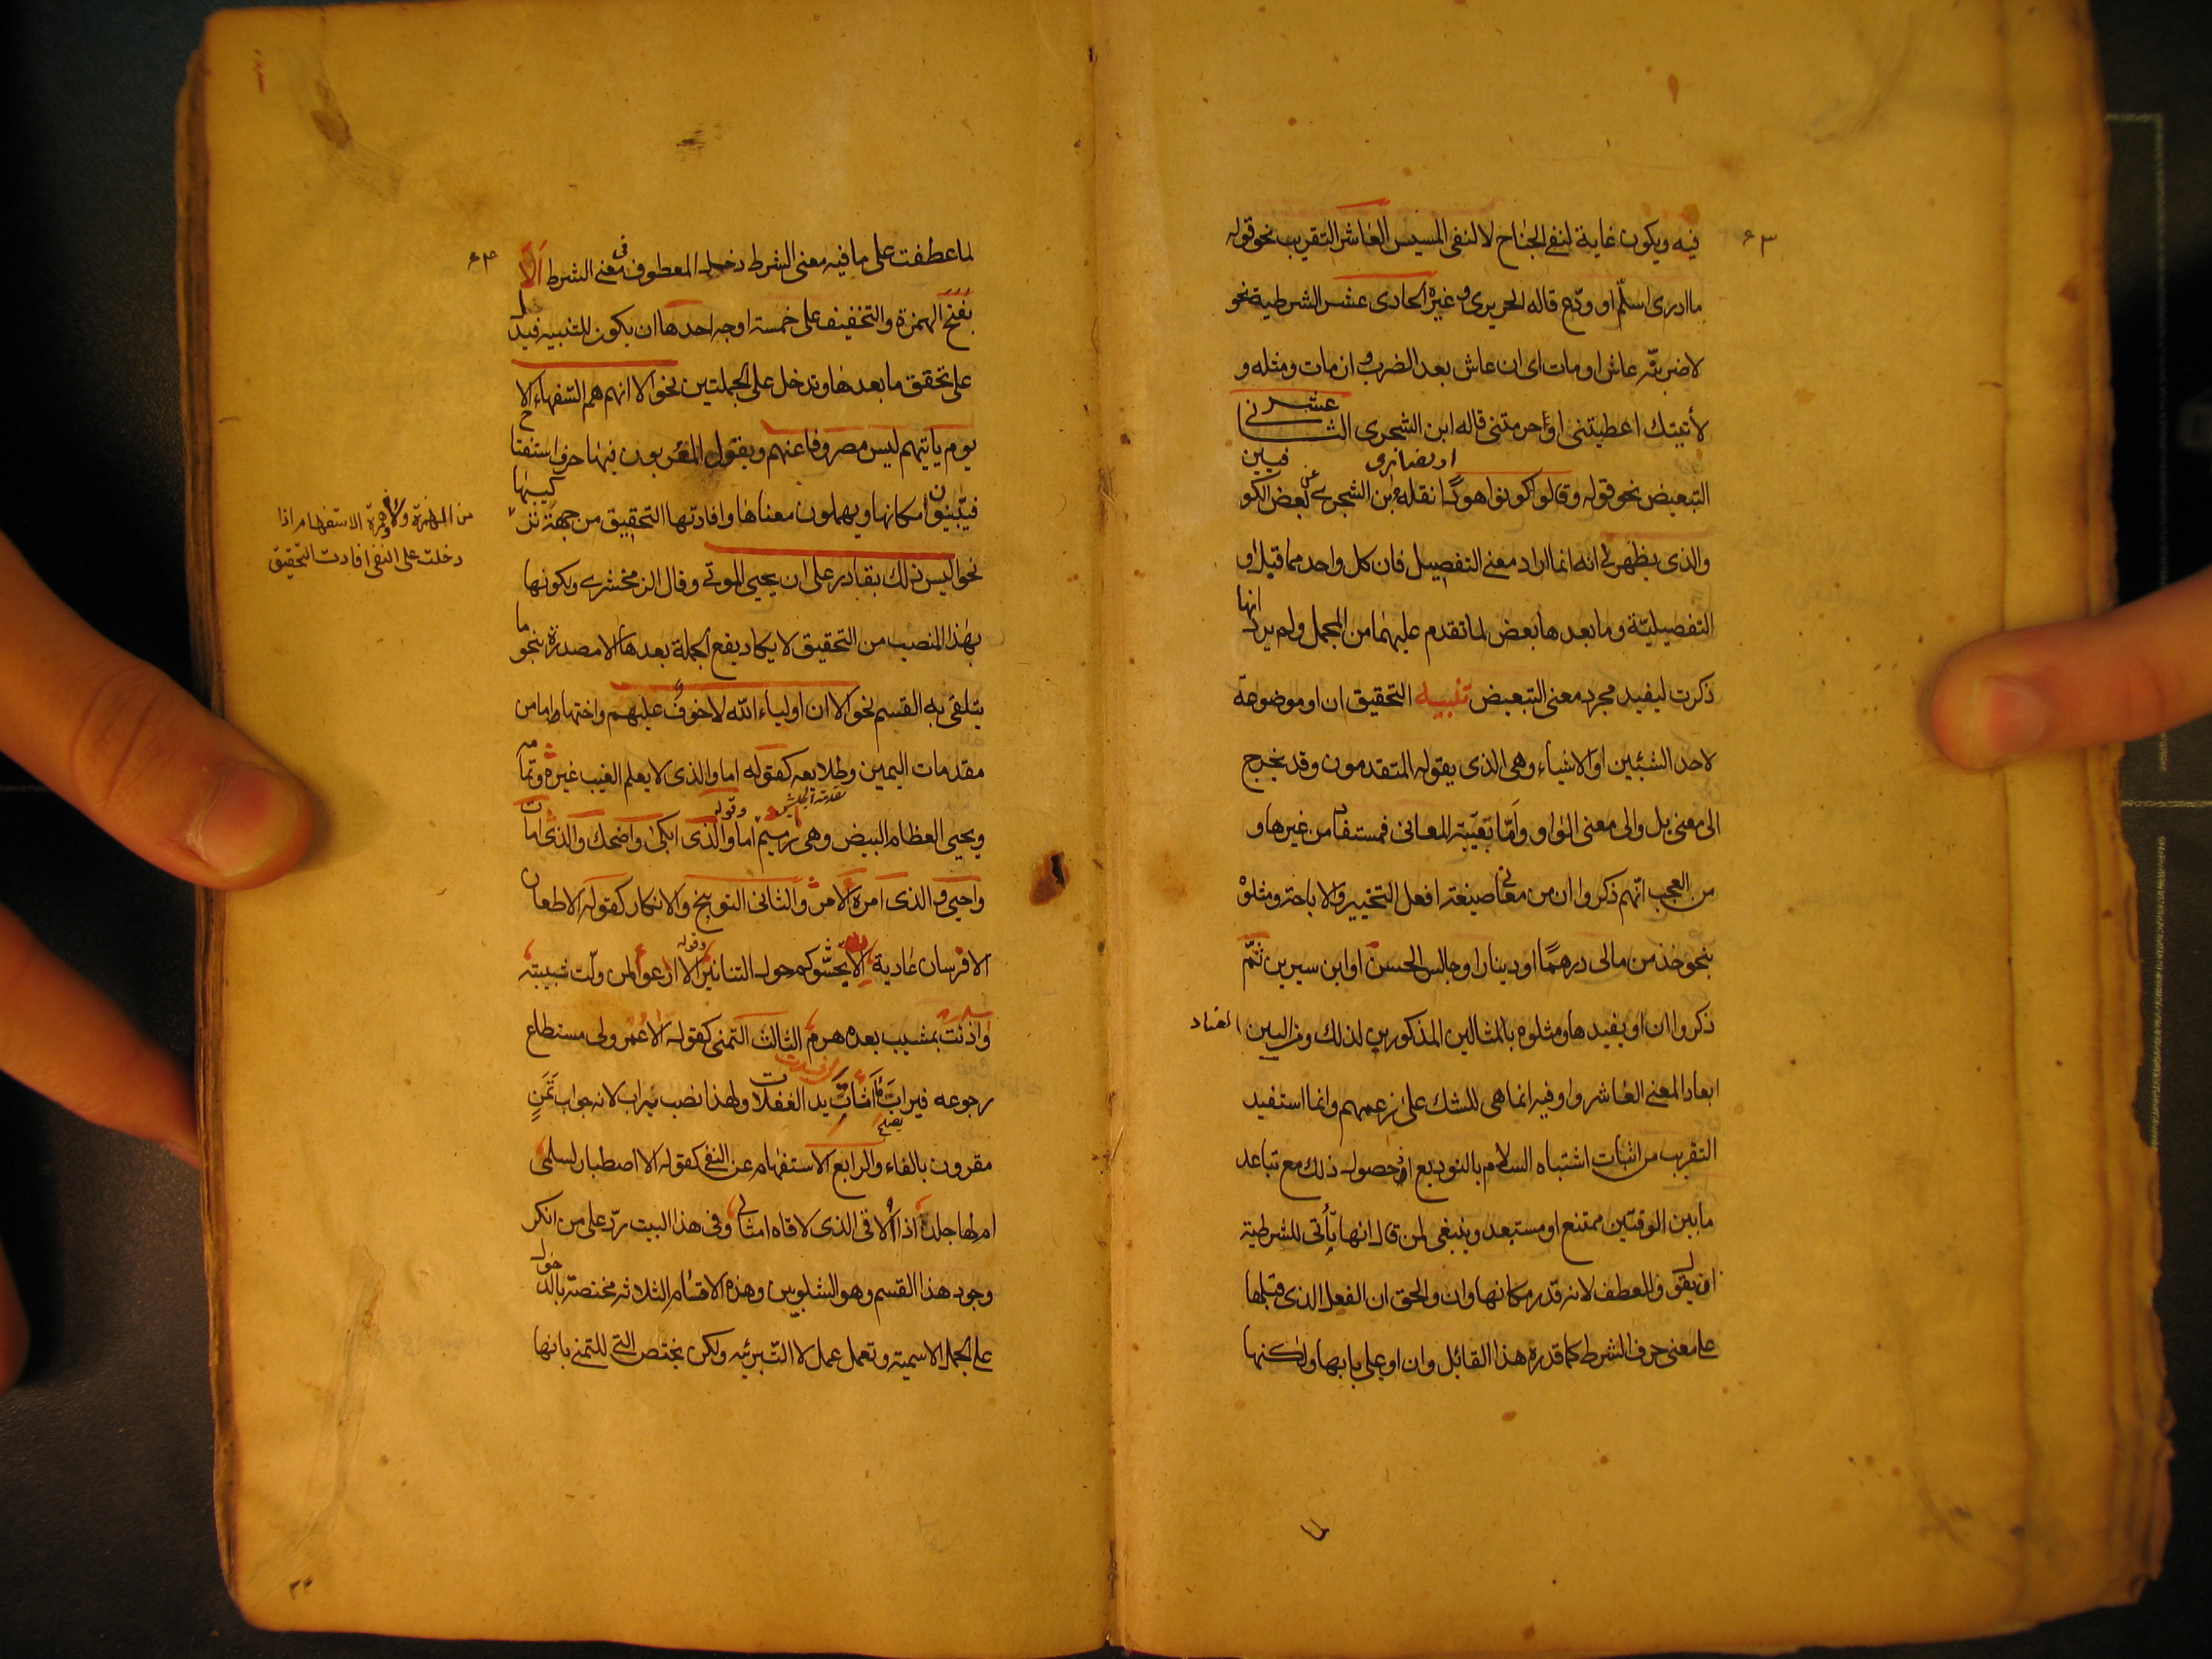 ٦٣
فيه ويكون غاية لنفى الجناح لا لنفى المسيس العاشر التقريب نحو قوله
ما ادرى اسلّم او ودّع قاله الحريرى وغيره الحادى عشر الشرطية نحو
لاضربنّه عاش او مات اى ان عاش بعد الضرب وان مات ومثله و
لأتينك اعطيتنى او احرمتنى قاله ابن الشجرى الثانى عشر
التبعيض نحو قوله وقالوا كونوا هودًا او نصارى نقله ابن الشجرى عن بعض الكوفيين
والذى يظهر لى انه انما اراد معنى التفصيل فان كل واحد مما قبل او
التفصيلية وما بعدها بعض لما تقدم عليهما من المجمل ولم يرد انها
ذكرت ليفيد مجرد معنى التبعيض تنبيه التحقيق ان او موضوعة
لاحد الشيئين او الاشياء وهى الذى يقوله المتقدمون وقد يخرج
الى معنى بل والى معنى الواو وامّا بقيّة المعانى فمستفاد من غيرها و
من العجب انّهم ذكروا ان من معانى صيغة افعل التخيير والاباحة ومثلوه
بنحو خذ من مالى درهمًا او دينارا وجالس الحسن او ابن سيرين ثمّ
ذكروا ان او يفيدها ومثلوه بالمثالين المذكورين لذلك ومن البين الفساد
المعنى العاشر واو فيه انما هى للشك على زعمهم وانما استفيد
التقريب من اثبات اشتباه السلام بالتوديع اذ حصول ذلك مع تباعد
ما بين الوقتين ممتنع او مستبعد وينبغى لمن قال انها يأتى للشرطية
ان يقول وللعطف لانه قدر مكانها وان والحق ان الفعل الذى قبلها
على معنى حرف الشرط كما قدره هذا القائل وان او على بابها ولكنها
٦٤
لما عطفت على ما فيه معنى الشرط دخل المعطوف فى معنى الشرط الا
بفتح الهمزة والتخفيف على خمسة اوجه احدها ان يكون للتنبيه فيدل
على تحقق ما بعدها وتدخل على الجملتين نحو الا انهم هم السفهاء الا
يوم ياتيهم ليس مصروفا عنهم ويقول المعربون فيها حرف استفتاح
فيبينون مكانها ويهملون معناها وافادتها التحقيق من جهة تركيبها
من الهمزة ولا وهمزة الاستفهام اذا
دخلت على النفى افادت التحقيق
نحو اليس ذلك بقادر على ان يحيى الموتى وقال الزمخشرى وبكونها
بهذا المنصب من التحقيق لا يكاد يقع الجملة بعدها الا مصدرة بنحو ما
يتلقى به القسم نحو الا ان اولياء الله لا خوف عليهم واختها اما من
مقدمات اليمين وطلايعه كقوله اما والذى لا يعلم الغيب غيره
ويحيى العظام البيض وهى رميم وقوله اما والذى ابكى واضحك والذى امات
واحيى والذى امره الامر والثانى التوبيخ والانكار كقوله الا طعان
الا فرسان عادية الا تجشّؤكم حول التنانير وقوله الا ارعواء لمن ولّت شبيبته
واذنت بمشيب بعده هرم الثالث التمنى كقوله الا عمر ولى مستطاع
رجوعه فيرأب ما اثأت يد الغفلات ولهذا نصب يرأب لانه جواب تمنّ
مقرون بالفاء والرابع الاستفهام عن النفى كقوله الا اصطبار لسلمى
ام لها جلد اذا الاقى الذى لاقاه امثالى وفى هذا البيت ردّ على من انكر
وجود هذا القسم وهو الشلوبين وهذه الاقسام الثلاثه مختصة بالدخول
على الجمل الاسمية وتعمل عمل لا التبرئيه ولكن يختص التى للتمنى بانها